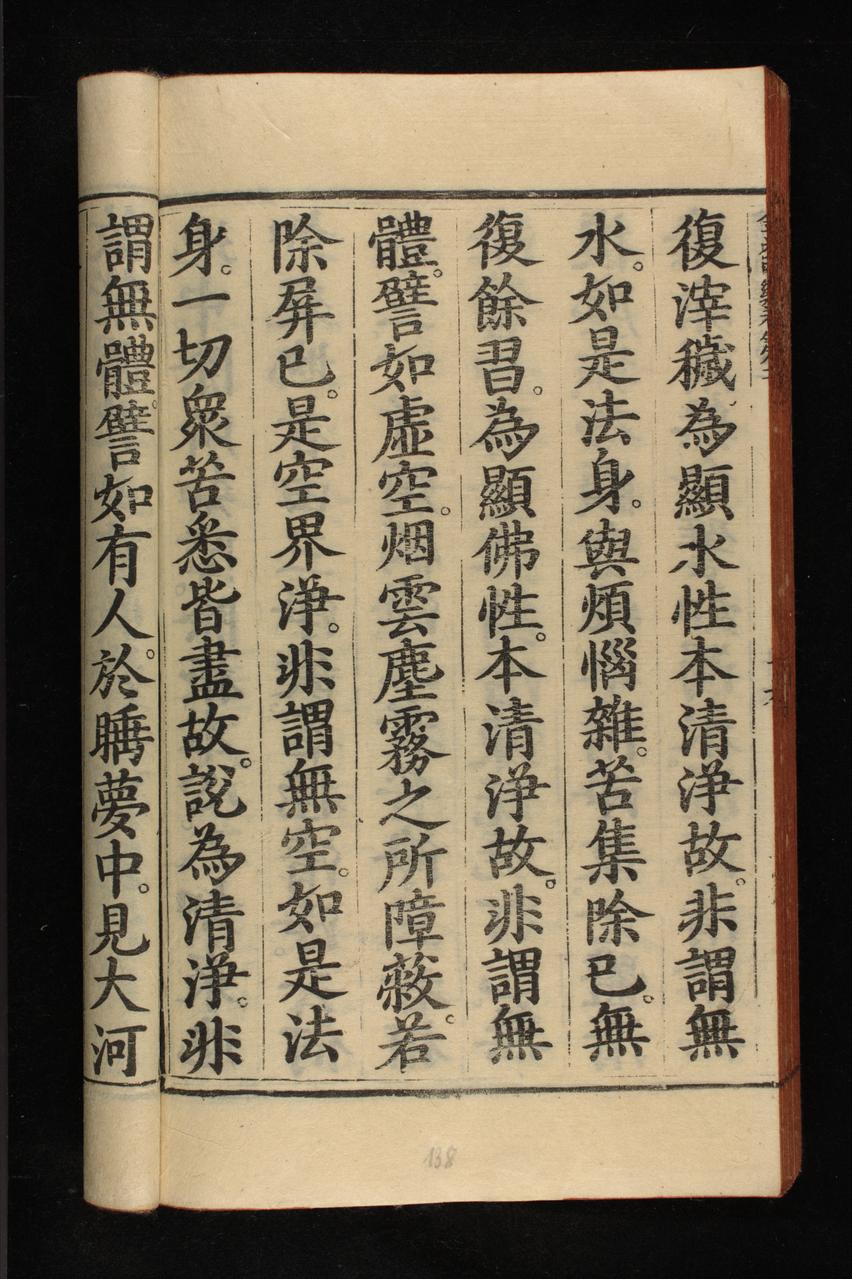 復滓穢為顯水性本清淨故。非謂無
水。如是法身。與煩惱雜。苦集除已。無
復餘習。為顯佛性。本清淨故。非謂無
體。譬如虛空。烟雲塵霧之所障蔽。若
除屏已。是空界淨。非謂無空。如是法
身。一切衆苦悉皆盡故。說為清淨。非
謂無體。譬如有人。於睡夢中。見大河
138